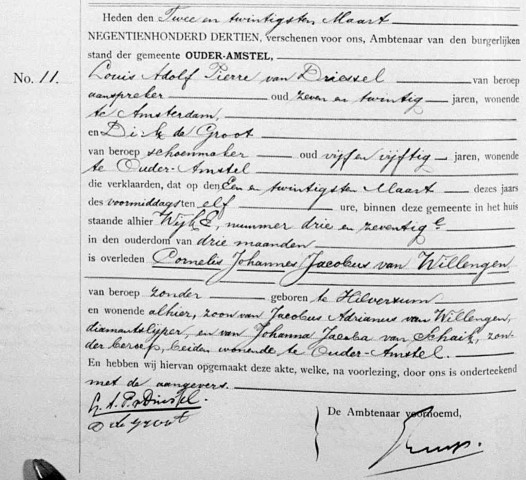 Heden den Twee en twintigsten Maart
NEGENTIENHONDERD DERTIEN, verschenen voor ons, Ambtenaar van den burgerlijken
stand der gemeente OUDER-AMSTEL,
No. 11. Louis Adolf Pierre van Driessel van beroep
aanspreker oud zeven en twintig jaren, wonende
te Amsterdam,
en Dirk de Groot
van beroep schoenmaker oud vijf en vijftig jaren, wonende
te Ouder-Amstel
die verklaarden, dat op den Een en twintigsten Maart dezes jaars
des voormiddags ten elf ure, binnen deze gemeente in het huis
staande alhier Wijk E, nummer drie en zeventig e
in den ouderdom van drie maanden
is overleden Cornelis Johannes Jacobus van Willengen
van beroep zonder geboren te Hilversum
en wonende alhier, zoon van Jacobus Adrianus van Willengen,
diamantslijper, en van Johanna Jacoba van Schaik, zon-
der beroep, beiden wonende te Ouder-Amstel.
En hebben wij hiervan opgemaakt deze akte, welke, na voorlezing, door ons is onderteekend
met de aangevers.
L. A. P. v Driessel.
D de Groot
De Ambtenaar voornoemd,